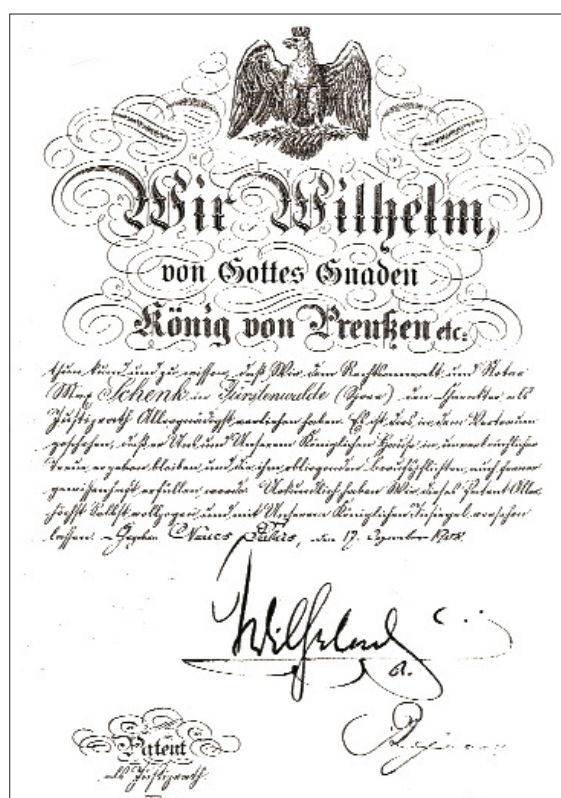 Wir Wilhelm,
von Gottes Gnaden
König von Preußen etc:
thun kund und zu wissen, daß Wir dem Rechtsanwalt und Notar
Max Schenk in Fürstenwalde (Spree) den Charakter als
Justizrath Allergnädigst verliehen haben. Es ist dies in dem Vertrauen
geschehen, daß er Uns und Unserem Königlichen Hause in unverbrüchlicher
Treue ergeben bleiben und die ihm obliegenden Berufspflichten auch ferner
gewissenhaft erfüllen werde. Urkundlich haben Wir dieses Patent Aller-
höchst Selbst vollzogen und mit Unserem Königlichen Insiegel versehen
lassen. Gegeben Neues Palais, den 17. Dezember 1908.
Wilhelm
R.
Patent
als Justizrath